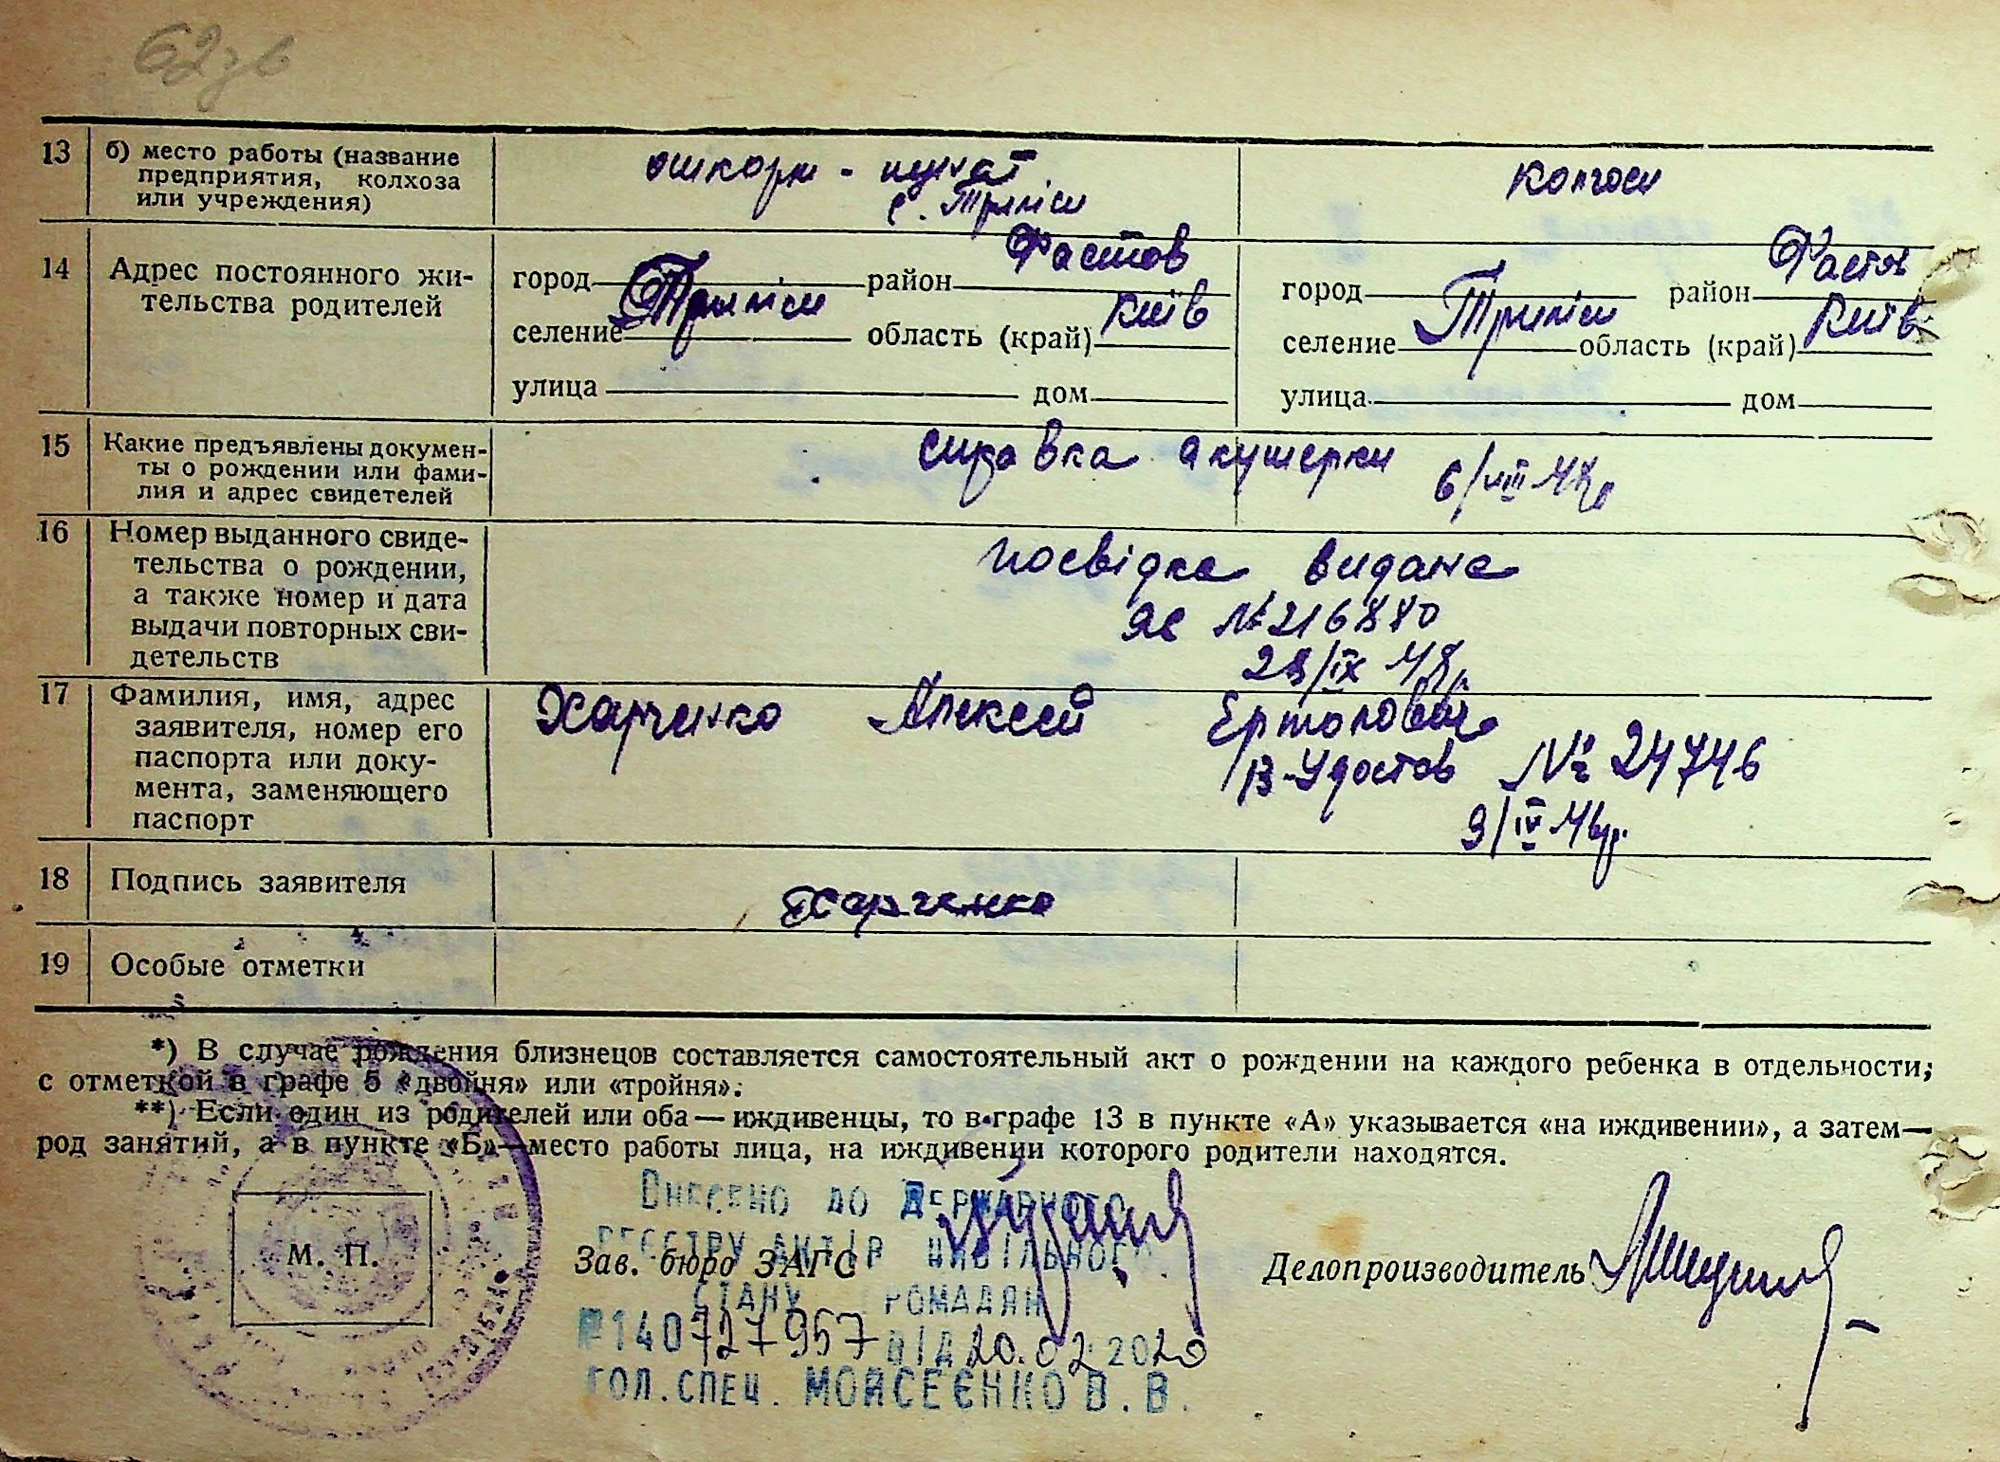 62зв
13 б) место работы (название
предприятия, колхоза
или учреждения)
колгосп
с. Трилісы
14 Адрес постоянного жи-
тельства родителей
город район Фастов
селение Триліси область (край) Київ
улица дом
город район Фастов
селение Триліси область (край) Київ
улица дом
15 Какие предъявлены докумен-
ты о рождении или фами-
лия и адрес свидетелей
справка акушерки 6/VIII 48р
16 Номер выданного свиде-
тельства о рождении,
а также номер и дата
выдачи повторных сви-
детельств
посвідка видана
ЯЄ № 216880
28/IX 48р.
17 Фамилия, имя, адрес
заявителя, номер его
паспорта или доку-
мента, заменяющего
паспорт
Харченко Алексей
В-Удостов № 24746
9/IV 46р.
18 Подпись заявителя
Харченко
19 Особые отметки
*) В случае рождения близнецов составляется самостоятельный акт о рождении на каждого ребенка в отдельности,
с отметкой в графе 5 «двойня» или «тройня».
**) Если один из родителей или оба — иждивенцы, то в графе 13 в пункте «А» указывается «на иждивении», а затем—
род занятий, а в пункте «Б»—место работы лица, на иждивении которого родители находятся.
М. П.
Зав. бюро ЗАГС
Делопроизводитель
Внесено до Державного
реєстру актів цивільного
стану громадян
№140727957 від 20.02.2020
гол.спец. Моисеєнко В. В.